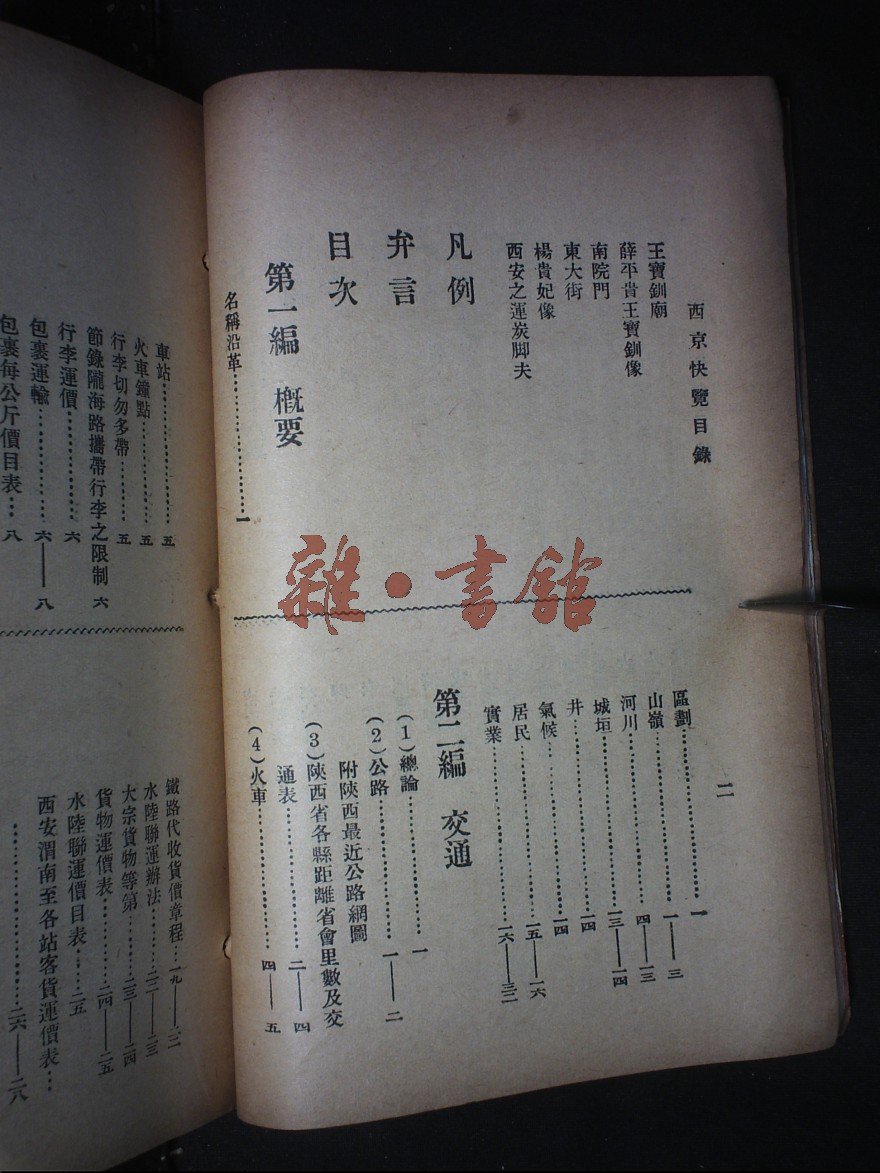 西京快覽目錄
二
王寶釧廟
薛平貴王寶釧像
南院門
東大街
楊貴妃像
西安之運炭脚夫
凡例
弁言
目次
第一編 概要
名稱沿革…………………一
區劃…………………一
山嶺…………………一——三
河川…………………四——一三
城垣…………………一三——一四
井…………………一四
氣候…………………一四
居民…………………一五——一六
實業…………………一六——三二
第二編 交通
(1)總論…………………一
(2)公路…………………一——二
附陝西最近公路網圖
(3)陝西省各縣距離省會里數及交
通表…………………二——四
(4)火車…………………四——五
車站…………………五
火車鐘點…………………五
行李切勿多帶…………五
節錄隴海路攜帶行李之限制 六
行李運價…………………六
包裹運輸…………………六——八
包裹每公斤價目表…八
鐵路代收貨價章程…一九——二二
水陸聯運辦法…………二二——二三
大宗貨物等第…………二三——二四
貨物運價表…………二四——二五
水陸聯運價目表………二五
西安渭南至各站客貨運價表…
…………………二六——二八
雜·書館